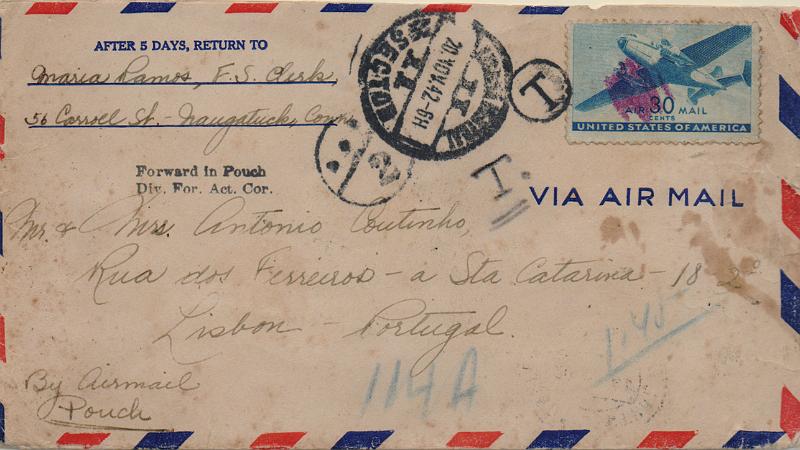 AFTER 5 DAYS, RETURN TO
Maria Ramos, F.S. Clerk
56 Carroll St. - Naugatuck, Conn
Forward in Pouch
Div. For. Act. Cor.
SECTION
20 NOV 42-6H
T
2
T
AIR 30 MAIL
CENTS
UNITED STATES OF AMERICA
VIA AIR MAIL
Mr. & Mrs. Antonio Coutinho,
Rua dos Ferreiros - a Sta Catarina - 18 2º
Lisbon - Portugal.
1.40
114A
By Airmail
Pouch